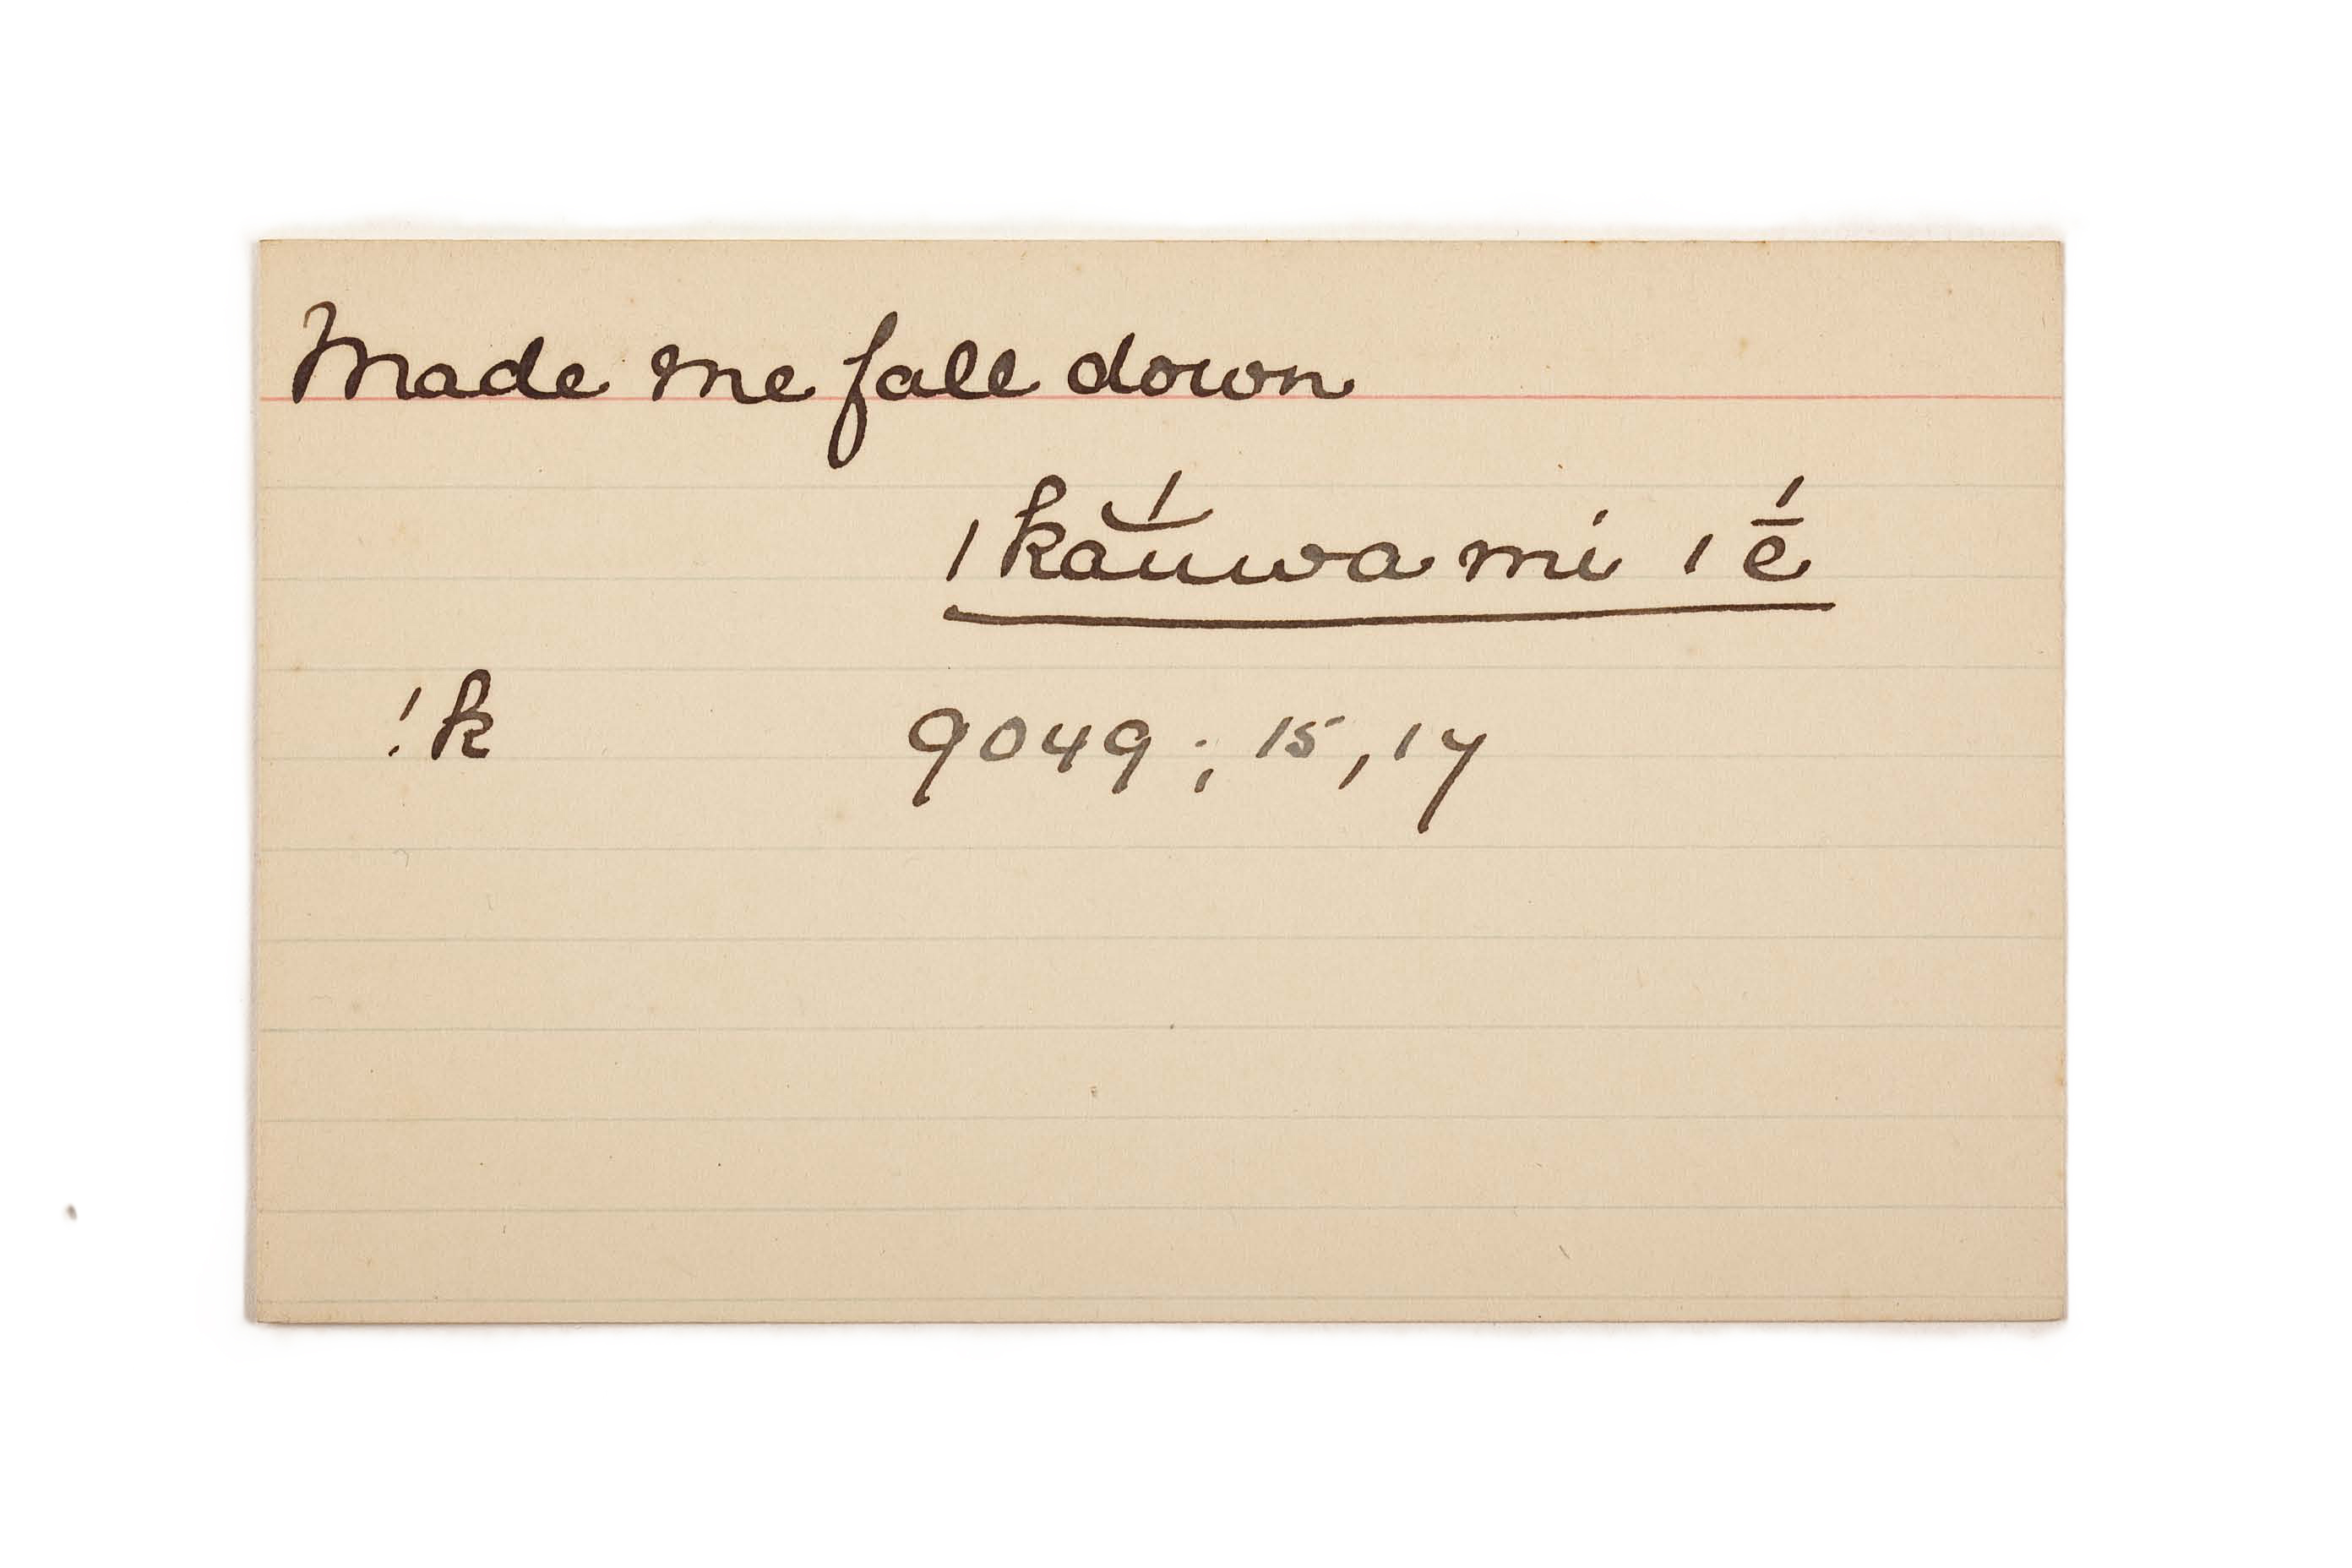 Made me fall down
|kaŭ́wa mi |ḗ
!k 9049; 15, 17